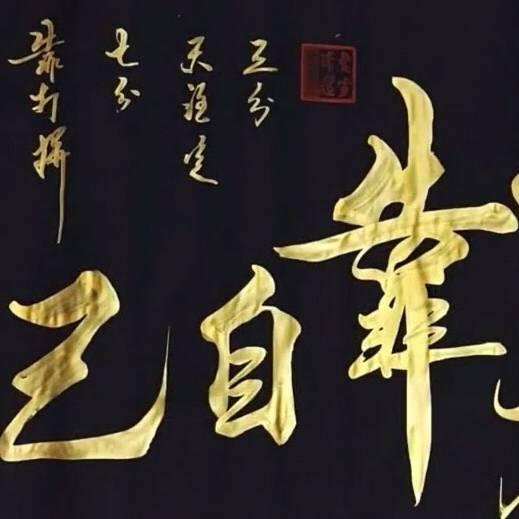 靠自己
三分
天註定
七分
靠打拼